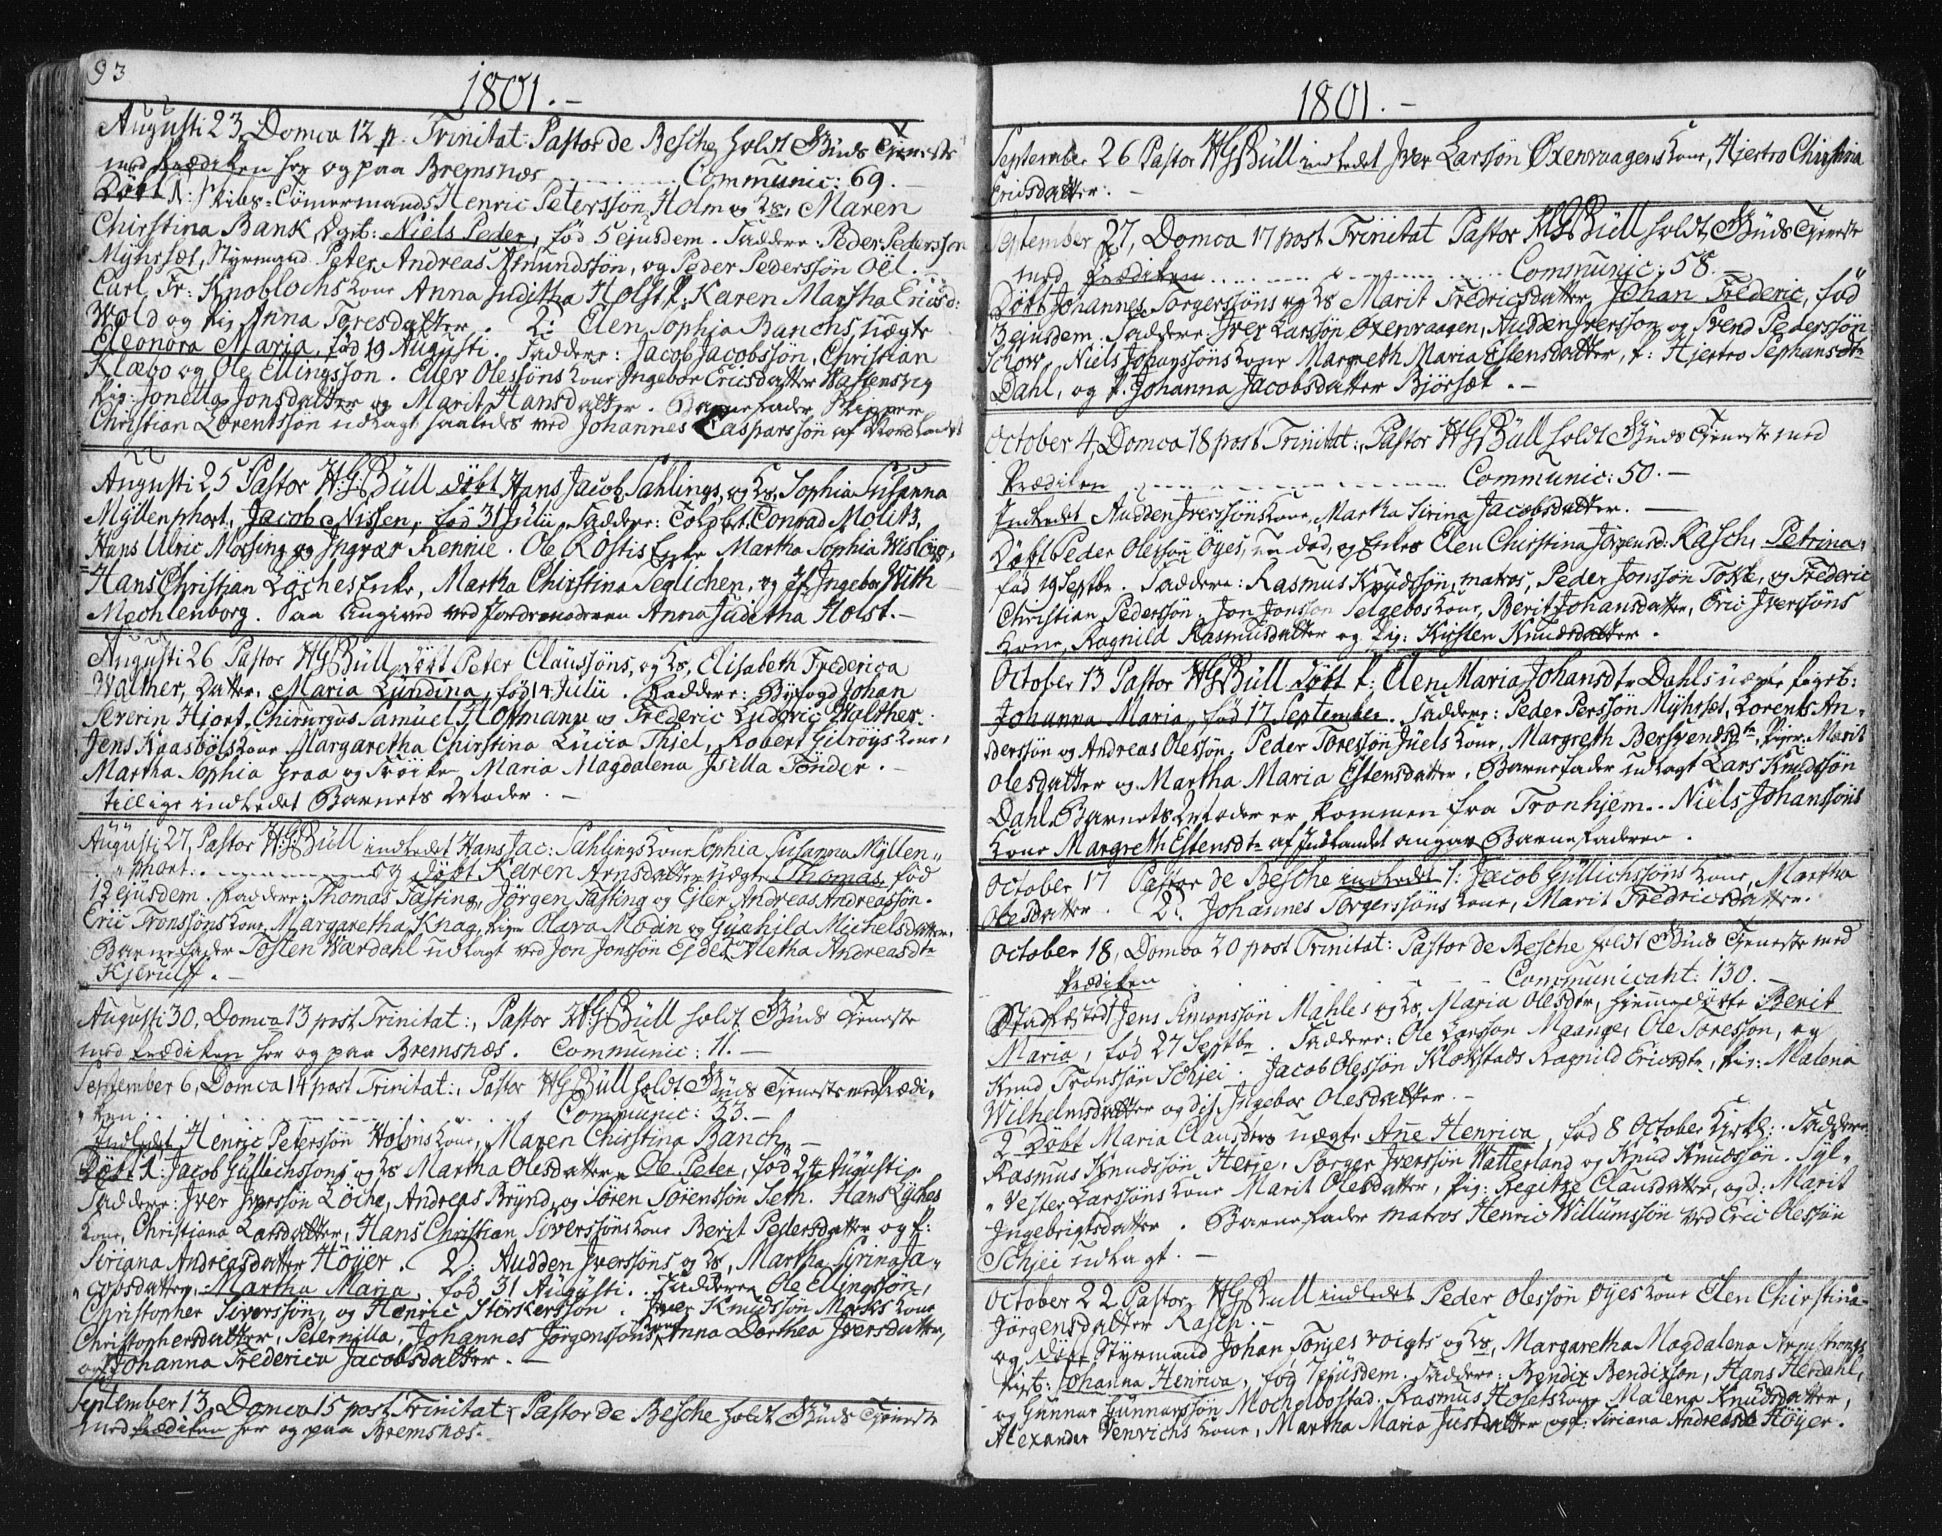 93
1801.-
Augusti 23, Domca 12 p. Trinitat: Pastor de Besche holdt Guds Tjeneste
med Prædiken her og paa Bremsnæs Communic: 69.-
Døbt N: Skibs-Tømermands Henric Petersson Holm og Hs. Maren
Christina Bank, Dgb: Niels Peder, fød 5 ejusdem. Faddere: Peder Pedersson
Myhrsæt, Styrmand Peter Andreas Asmundssøn, og Peder Pederssøn Oël.-
Carl Fr: Knoblochs kone Anna Juditha Holst, P: Karen Martha Ericsd:
Wold og Pig. Anna Toresdatter. 2: Elen Sophia Banchs uægte
Eleonora Maria, fød 19 Augusti. Faddere: Jacob Jacobssøn, Christian
Klæbo og Ole Ellingsson. Ellev Olessøns kone Ingebor Ericsdatter Wastensvig
Pig: Jonetta Jonsdatter og Marit Hansdatter. Barnefader Skipper
Christian Lorentssøn udlagt saaledes ved Johannes Casparssøn af Nordlandet
Augusti 25 Pastor HGBüll døbt Hans Jacob Sahlings, og Hs. Sophia Susanna
Myllenphort, Jacob Nissen, fød 31 Julii, Faddere: Toldbet. Conrad Moltz,
Hans Ulric Møssing og Ingvær Rennie. Ole Rostis Enke Martha Sophia Wisløw,
Hans Christian Lyches Enke, Martha Christina Seglichen, og Jf. Ingebor With
Mechlenborg. Saa angived ved Jordemoderen Anna Juditha Holst.-
Augusti 26 Pastor HGBüll døbt Peter Claussøns, og Hs. Elisabeth Frederica
Walther, Datter, Maria Lundina, fød 14 Julii. Faddere: Byfogd Johan
Severin Hjort, Chirurgus Samuel Hoffmann og Frederic Ludevic Walther.
Jens Kaasbøls kone Margaretha Christina Lucia Thiel, Robert Gilroys kone,
Martha Sophia Graa og Frøiken Maria Magdalena Isella Tønder.-
tillige indledet Barnets Moder.-
Augusti 27, Pastor HGBüll indledet Hans Jac: Sahlings kone Sophia Susanna Myllen-
phort. og døbt Karen Arnsdatters uægte Thomas, fød
12 ejusdem. Faddere: Thomas Fasting, Jørgen Fasting og Esler Andreas Andreassøn.
Eric Tronssøns kone Margaretha Knag, Piger Olava Modin og Gunhild Michelsdatter.
Barnefader Tosten Wardahl udlagt ved Jon Jonssøn Ejde, Aletha Andreasdr
Kjerulff.-
Augusti 30, Domca 13 post Trinitat:, Pastor HGBüll holdt Guds Tjeneste
med Prædiken her og paa Bremsnæs. Communic: 11.-
September 6, Domca 14 post Trinitat:, Pastor HGBüll holdt Guds Tjeneste med Prædi-
ken Communic: 33.-
Indledet Henric Peterssøn Holms kone, Maren Christina Banch.-
Døbt 1: Jacob Gullichssøns og Hs Martha Olesdatter, Ole Peter, fød 24 Augusti
Faddere: Iver Iverssøn Løche, Andreas Brynd, og Søren Sørenssøn Seth. Hans Lyches
kone, Christiana Larsdatter, Hans Christian Sverssøns kone Berit Pedersdatter og f:
Siriana Andreasdatter Høyer. 2: Audden Iverssøns og Hs, Martha Sirina Ja-
cobsdatter, Martha Maria, fød 31 Augusti. Faddere Ole Ellingssøn,
Christopher Siverssøn, og Henric Størkerssøn. Iver Knudssøn Morks kone
Christophersdatter, Peternilla, Johannes Jørgenssøns kone Anna Dorthea Iversdatter,
og Johanna Frederica Jacobsdatter.-
September 13, Domca 15 post Trinitat:, Pastor de Besche holdt Guds Tjeneste
med Prædiken her og paa Bremsnæs.-
1801.-
September 26 Pastor HGBüll indledet Iver Larssøn Øxenvaagens kone, Hjertro Christina
Ericsdatter.-
September 27, Domca 17 post Trinitat Pastor HGBüll holdt Guds Tjeneste
med Prædiken Communic: 58.-
Døbt Johannes Torgerssøns og Hs Marit Fredricsdatter, Johan Frederic, fød
3 ejusdem. Faddere Iver Larssøn Øxenvaagen, Audden Iversson og Svend Pederssøn
Schow, Niels Johanssøns kone Margreth Maria Estensdatter, P: Hjertro Stephansdtr
Dahl, og P. Johanna Jacobsdatter Bjørsæt.-
October 4, Domca 18 post Trinitat:, Pastor HGBüll holdt Guds Tjeneste med
Prædiken Communic: 50.-
Indledet Audden Iverssøns kone, Martha Sirina Jacobsdatter.-
Døbt Peder Olessøn Øyes, nu død, og Enkes Elen Christina Jørgensd: Rasch, Petrina,
fød 19 Septbr. Faddere: Rasmus Knudssøn, matros, Peder Jonssøn Toxte, og Frederic
Christian Pederssøn, Jon Jonsson Selgebos kone, Berit Johansdatter, Eric Iverssøns
kone, Ragnild Rasmusdatter og Pig: Kirsten Knudsdatter.
October 13 Pastor HGBüll døbt P: Elen Maria Johansdtr Dahls uægte Pigeb:
Johanna Maria, fød 17 September. Faddere: Peder Perssøn Myhrsæt, Lorents An-
derssøn og Andreas Olessøn, Peder Toressøn Juels kone, Margreth Bersvendsdtr, Piger Marit
Olesdatter og Martha Maria Estensdatter. Barnefader udlagt Lars Knudssøn
Dahl. Barnets Moder er kommen fra Tronhjem. Niels Johanssøns
kone Margreth Estensdtr af Indlandet angav Barnefaderen.
October 17 Pastor de Besche indledet 1: Jacob Gullichssøns kone, Martha
Olesdatter. 2: Johannes Torgerssøns kone, Marit Fredricsdatter.
October 18, Domca 20 post Trinitat: Pastor de Besche holdt Guds Tjeneste med
Prædiken Communicant: 130.-
Stadfæsted Jens Simonssøn Mahles og Hs, Maria Olesdtr, hjemmedøbte Berit
Maria, fød 27 Septbr. Faddere: Ole Larsson Maange, Ole Toressøn, og
Knud Tronssøn Schjei. Jacob Olessøn Klokstads Ragnild Ericsdtr, Pig: Malena
Wilhelmsdatter og dit. Ingebor Olesdatter.-
2 Døbt Maria Clausdtrs uægte Ane Henrica, fød 8 October hjrtl: Faddere
Rasmus Knudssøn Herje, Torger Iverssøn Watterland og Knud Knudssøn. Syl-
vester Larssøns kone Marit Olesdatter, Pig: Regitze Clausdatter, og d: Marit
Ingebrigtsdatter. Barnefader matros Henric Willumssøn ved Eric Olessøn
Schjei udlagt.-
October 22 Pastor HGBüll indledet Peder Olessøn Øyes kone Elen Christina
Jørgensdatter Rasch.-
og døbt Styrmand Johan Torges Voigts og Hs, Margaretha Magdalena Armstrongs
Pigb: Johanna Henrica, fød 1 ejusdem. Faddere: Bendix Bendixson, Hans Herdahl,
og Gunnar Gunnarssøn Mochelbostad. Rasmus Hosets kone Malena Knudsdatter,
Alexander Henrichs kone, Martha Maria Justdatter og f: Siriana Andreasd: Høyer.